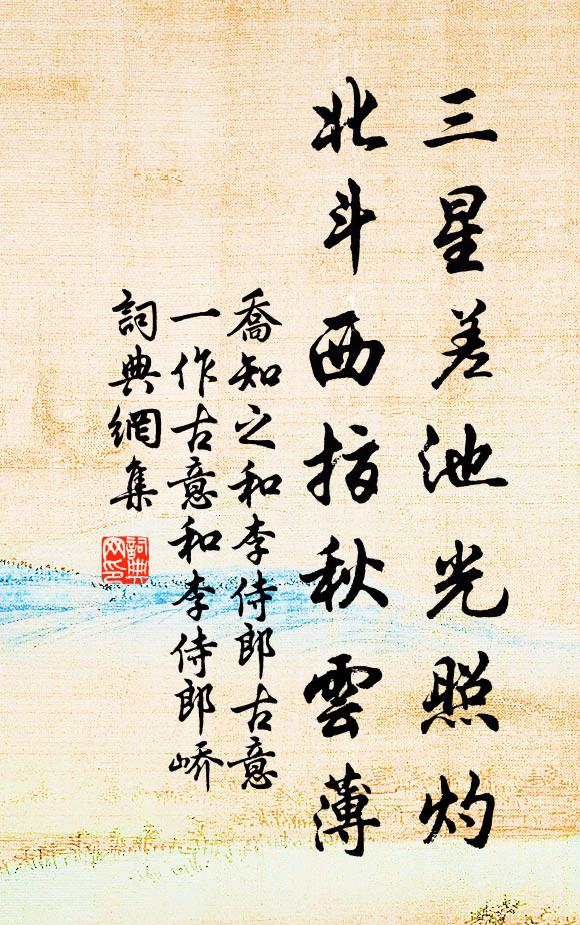 三星差池光照灼
北斗西指秋雲薄
喬知之和李侍郎古意
一作古意和李侍郎嶠
詞典網集
詞典
网印